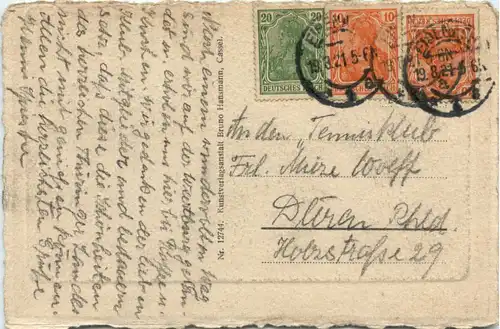 Nach einem wundervollen Weg
sind wir auf der Wartburg gelan-
det u. erholen uns hier bei Kaffee.
Hierbei wir gedenken der lieben
Klub-Mitglieder und bedauern
sehr, dass diese die Schönheiten
des herrlichen Thüringer Landes
nicht mit genießen können.
Allen die herzlichsten Grüße
Nr. 12744. Kunstverlagsanstalt Bruno Hansmann, Cassel.
20 20
DEUTSCHES REICH
10
19.8.21.5-6N.
19.8.21.5-6N.
An den "Tennisklub
Frl. Mieze Wolff
Düren Rhld.
Holzstraße 29